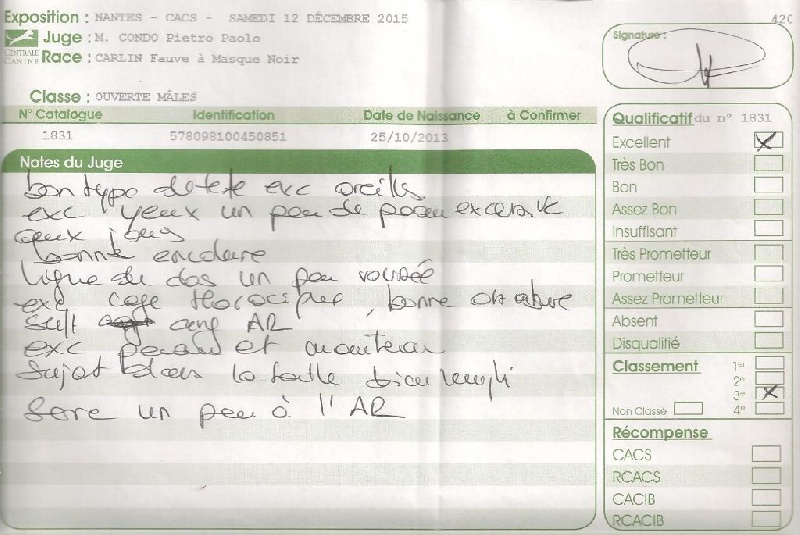 Exposition : NANTES - CACS - SAMEDI 12 DÉCEMBRE 2015
420
CENTRALE CANINE
Juge : M. CONDO Pietro Paolo
Race : CARLIN Fauve à Masque Noir
Signature :
Classe : OUVERTE MÂLES
N° Catalogue Identification Date de Naissance à Confirmer
1831 578098100450851 25/10/2013
Notes du Juge
bon type de tete exc oreilles
exc yeux un peu de peau excessive
aux joues
bonne encolure
ligne du dos un peu voussée
exc cage thoracique, bonne ossature
suff ang AR
exc peau et manteau
Sujet dans la taille bien rempli
Serre un peu à l'AR
Qualificatif du n° 1831
Excellent X
Très Bon
Bon
Assez Bon
Insuffisant
Très Prometteur
Prometteur
Assez Prometteur
Absent
Disqualifié
Classement 1er
2e
3e X
Non Classé 4e
Récompense
CACS
RCACS
CACIB
RCACIB